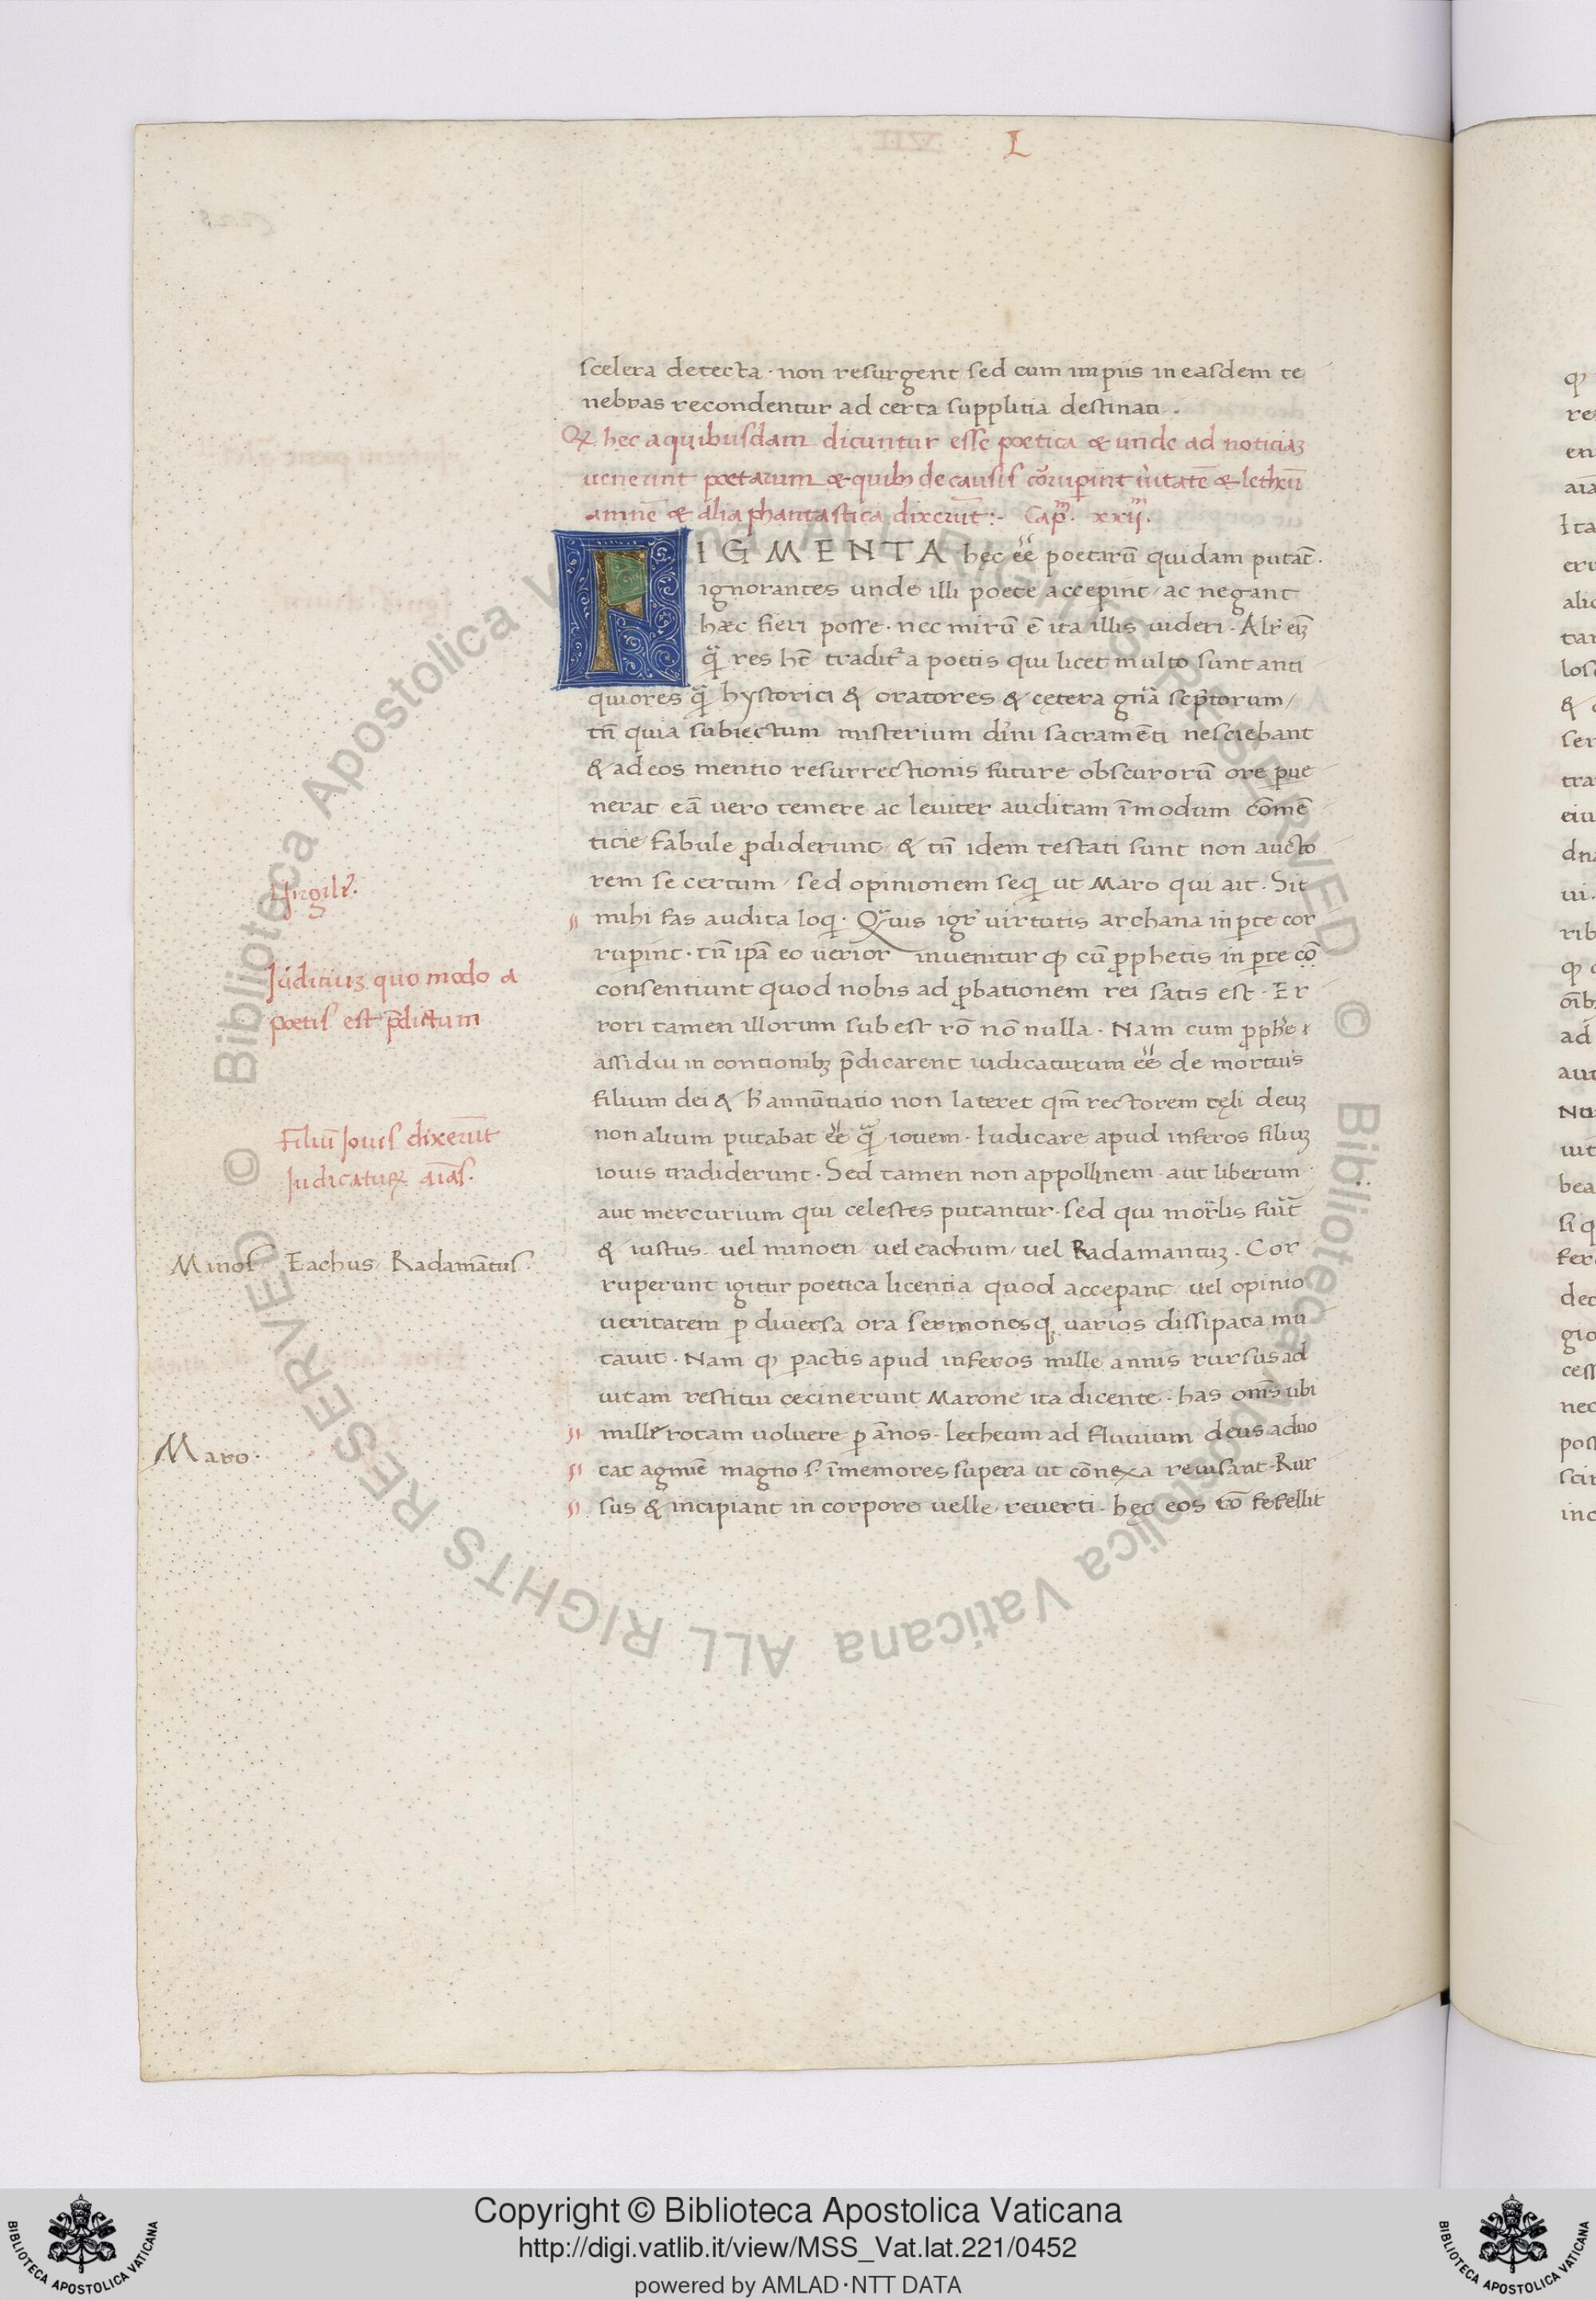 L
scelera detecta · non resurgent sed cum impiis in easdem te
nebras recondentur ad certa supplitia destinati ·
Qꝫ hec a quibusdam dicuntur esse poetica & unde ad noticiaꝫ
uenerunt poetarum & quibꝫ de causis corruperint ueritatē & letheū
amnē & alia phantastica dixerūt :- Cap. xxij.
FIGMENTA hęc ee͂ poetarū quidam putāt ·
ignorantes unde illi poete acceperint / ac negant
hæc fieri posse · nec mirū ē ita illis uideri · Alr̄ eīꝫ
qᷓ res hēt tradit᷑ a poetis qui licet multo sunt anti
quiores qᷓ hystorici & oratores & cętera gn̄a scp̄torum /
tn̄ quia subiectum misterium diuini sacramēti nesciebant
& ad eos mentio resurrectionis future obscurorū ore ꝑue
nerat eā vero temere ac leviter auditam ī modum cōmē
ticie fabule ꝓdiderunt & tn̄ idem testati sunt non aucto
rem se certum / sed opinionem seq̄ ut Maro qui ait · Sit
Virgili᷑.
mihi fas audita loq̄ · Quis igr̄ virtutis archana in ꝑte cor
ruꝑint · tn̄ ipā eo verior invenitur ꝙ cū ꝓphetis in ꝑte cō
Iuditiuꝫ quo modo a
poetis est p̄dictum
consentiunt quod nobis ad ꝓbationem rei satis est · Er
rori tamen illorum subest rō nō nulla · Nam cum ꝓphete
assidui in contionibꝫ p̄dicarent iudicaturum ee͂ de mortuis
filium dei & h̄ annūtiatio non lateret qm̄ rectorem cęli deuꝫ
Filiū Iouis dixerūt
Iudicaturꝫ aīas.
non alium putabat ee͂ qᷓ iovem · Iudicare apud inferos filiuꝫ
iovis tradiderunt · Sed tamen non appollinem · aut liberum
aut mercurium qui celestes putantur · sed qui mortalis fuit
& iustus vel minoen vel eachum / vel Radamantuꝫ · Cor
Minos Eachus Radamātus.
ruperunt igitur poetica licentia quod acceperant vel opinio
veritatem ꝑ diversa ora sermonesqꝫ varios dissipata mu
tavit · Nam ꝙ ꝑactis apud inferos mille annis rursus ad
vitam restitui cecinerunt Marone ita dicente · has om̄s ubi
mille rotam voluere ꝑ ānos · letheum ad fluvium deus advo
Maro ·
cat agmīe magno s. īmemores supera ut cōnexa revisant · Rur
sus & incipiant in corpore velle reverti · hęc eos rō fefellit
© Biblioteca Apostolica Vaticana ALL RIGHTS RESERVED © Biblioteca Apostolica Vaticana ALL RIGHTS RESERVED
BIBLIOTECA APOSTOLICA VATICANA
Copyright © Biblioteca Apostolica Vaticana
http://digi.vatlib.it/view/MSS_Vat.lat.221/0452
powered by AMLAD·NTT DATA
BIBLIOTECA APOSTOLICA VATICANA